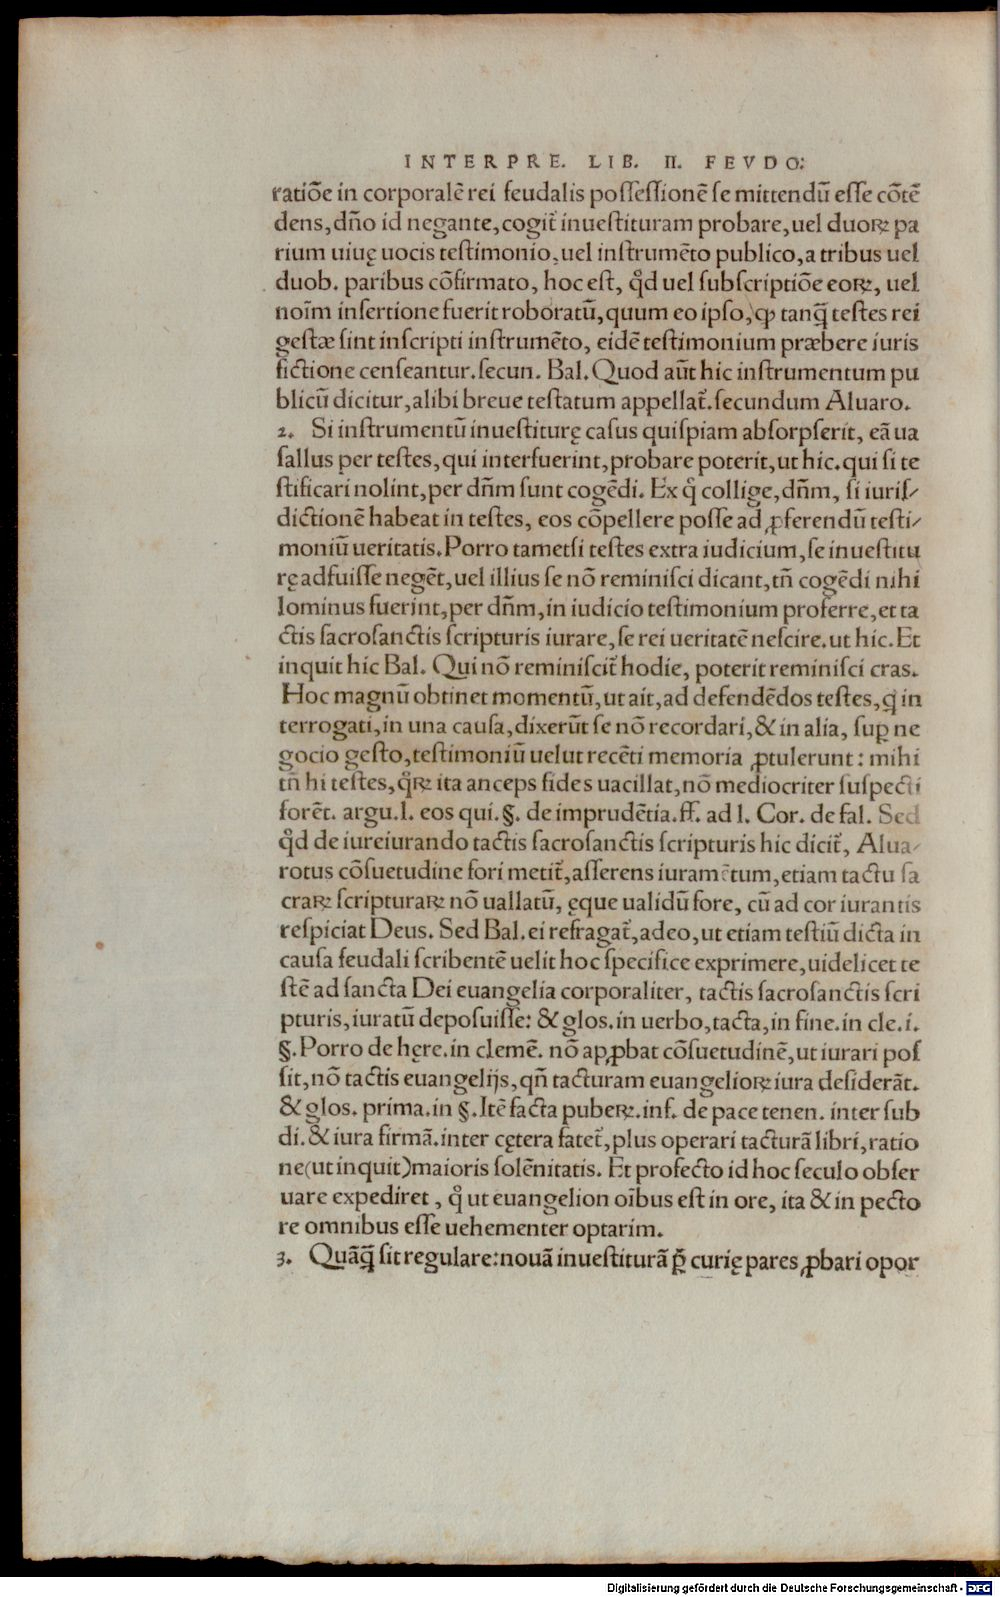 INTERPRE. LIB. II. FEVDO:
ratiõe in corporalẽ rei feudalis poſſeſſionẽ ſe mittendũ eſſe cõtẽ
dens, dño id negante, cogit᷑ inueſtituram probare, uel duoꝝ pa
rium uiuę uocis teſtimonio, uel inſtrumẽto publico, a tribus uel
duob. paribus cõfirmato, hoc eſt, qd̓ uel ſubſcriptiõe eoꝝ, uel
noĩm inſertione fuerit roboratũ, quum eo ipſo, ꝙ tanq̃ teſtes rei
geſtæ ſint inſcripti inſtrumẽto, eidẽ teſtimonium præbere iuris
fictione cenſeantur. ſecun. Bal. Quod aũt hic inſtrumentum pu
blicũ dicitur, alibi breue teſtatum appellat᷑. ſecundum Aluaro.
2. Si inſtrumentũ inueſtiturę caſus quiſpiam abſorpſerit, eã ua
ſallus per teſtes, qui interfuerint, probare poterit, ut hic. qui ſi te
ſtificari nolint, per dñm ſunt cogẽdi. Ex qͦ collige, dñm, ſi iuriſ⸗
dictionẽ habeat in teſtes, eos cõpellere poſſe ad ꝓferendũ teſti⸗
moniũ ueritatis. Porro tametſi teſtes extra iudicium, ſe inueſtitu
rę adfuiſſe negẽt, uel illius ſe nõ reminiſci dicant, tñ cogẽdi nihi
lominus fuerint, per dñm, in iudicio teſtimonium proferre, et ta
ctis ſacroſanctis ſcripturis iurare, ſe rei ueritatẽ neſcire. ut hic. Et
inquit hic Bal. Qui nõ reminiſcit᷑ hodie, poterit reminiſci cras.
Hoc magnũ obtinet momentũ, ut ait, ad defendẽdos teſtes, q in
terrogati, in una cauſa, dixerũt ſe nõ recordari, & in alia, ſuꝑ ne
gocio geſto, teſtimoniũ uelut recẽti memoria ꝓtulerunt : mihi
tñ hi teſtes, qͦꝝ ita anceps fides uacillat, nõ mediocriter ſuſpecti
forẽt. argu. l. eos qui. §. de imprudẽtia. ff. ad l. Cor. de fal. Sed
qd̓ de iureiurando tactis ſacroſanctis ſcripturis hic dicit᷑, Alua⸗
rotus cõſuetudine fori metit᷑, aſſerens iuramẽtum, etiam tactu ſa
craꝝ ſcripturaꝝ nõ uallatũ, ęque ualidũ fore, cũ ad cor iurantis
reſpiciat Deus. Sed Bal. ei refragat᷑, adeo, ut etiam teſtiũ dicta in
cauſa feudali ſcribentẽ uelit hoc ſpecifice exprimere, uidelicet te
ſtẽ ad ſancta Dei euangelia corporaliter, tactis ſacroſanctis ſcri
pturis, iuratũ depoſuiſſe: & glos. in uerbo, tacta, in fine. in cle. i.
§. Porro de hęre. in clemẽ. nõ apꝓbat cõſuetudinẽ, ut iurari poſ
ſit, nõ tactis euangelijs, qñ tacturam euangelioꝝ iura deſiderãt.
& glos. prima. in §. Itẽ ſacta puberꝝ. inf. de pace tenen. inter ſub
di. & iura firmã. inter cętera fatet᷑, plus operari tacturã libri, ratio
ne (ut inquit) maioris ſolẽnitatis. Et profecto id hoc ſeculo obſer
uare expediret , qͦ ut euangelion oĩbus eſt in ore, ita & in pecto
re omnibus eſſe uehementer optarim.
3. Quãq̃ ſit regulare: nouã inueſtiturã ꝑ curię pares ꝓbari opor
Digitalisierung gefördert durch die Deutsche Forschungsgemeinschaft - DFG